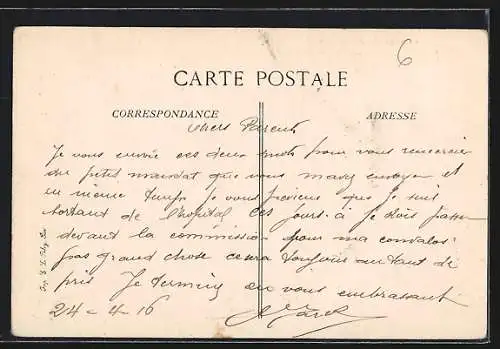 6
CARTE POSTALE
CORRESPONDANCE
ADRESSE
chers Parents
Je vous envoie ces deux mots pour vous remercier
du petit mandat que vous mavez envoyer et
en même temps Je vous previens que Je suis
sortant de l'hopital Ces Jours. à Je dois passer
devant la commission pour ma convales.
pas grand chose cesera toujours autant de
pris Je termine en vous embrassant
24-4-16
Marcel